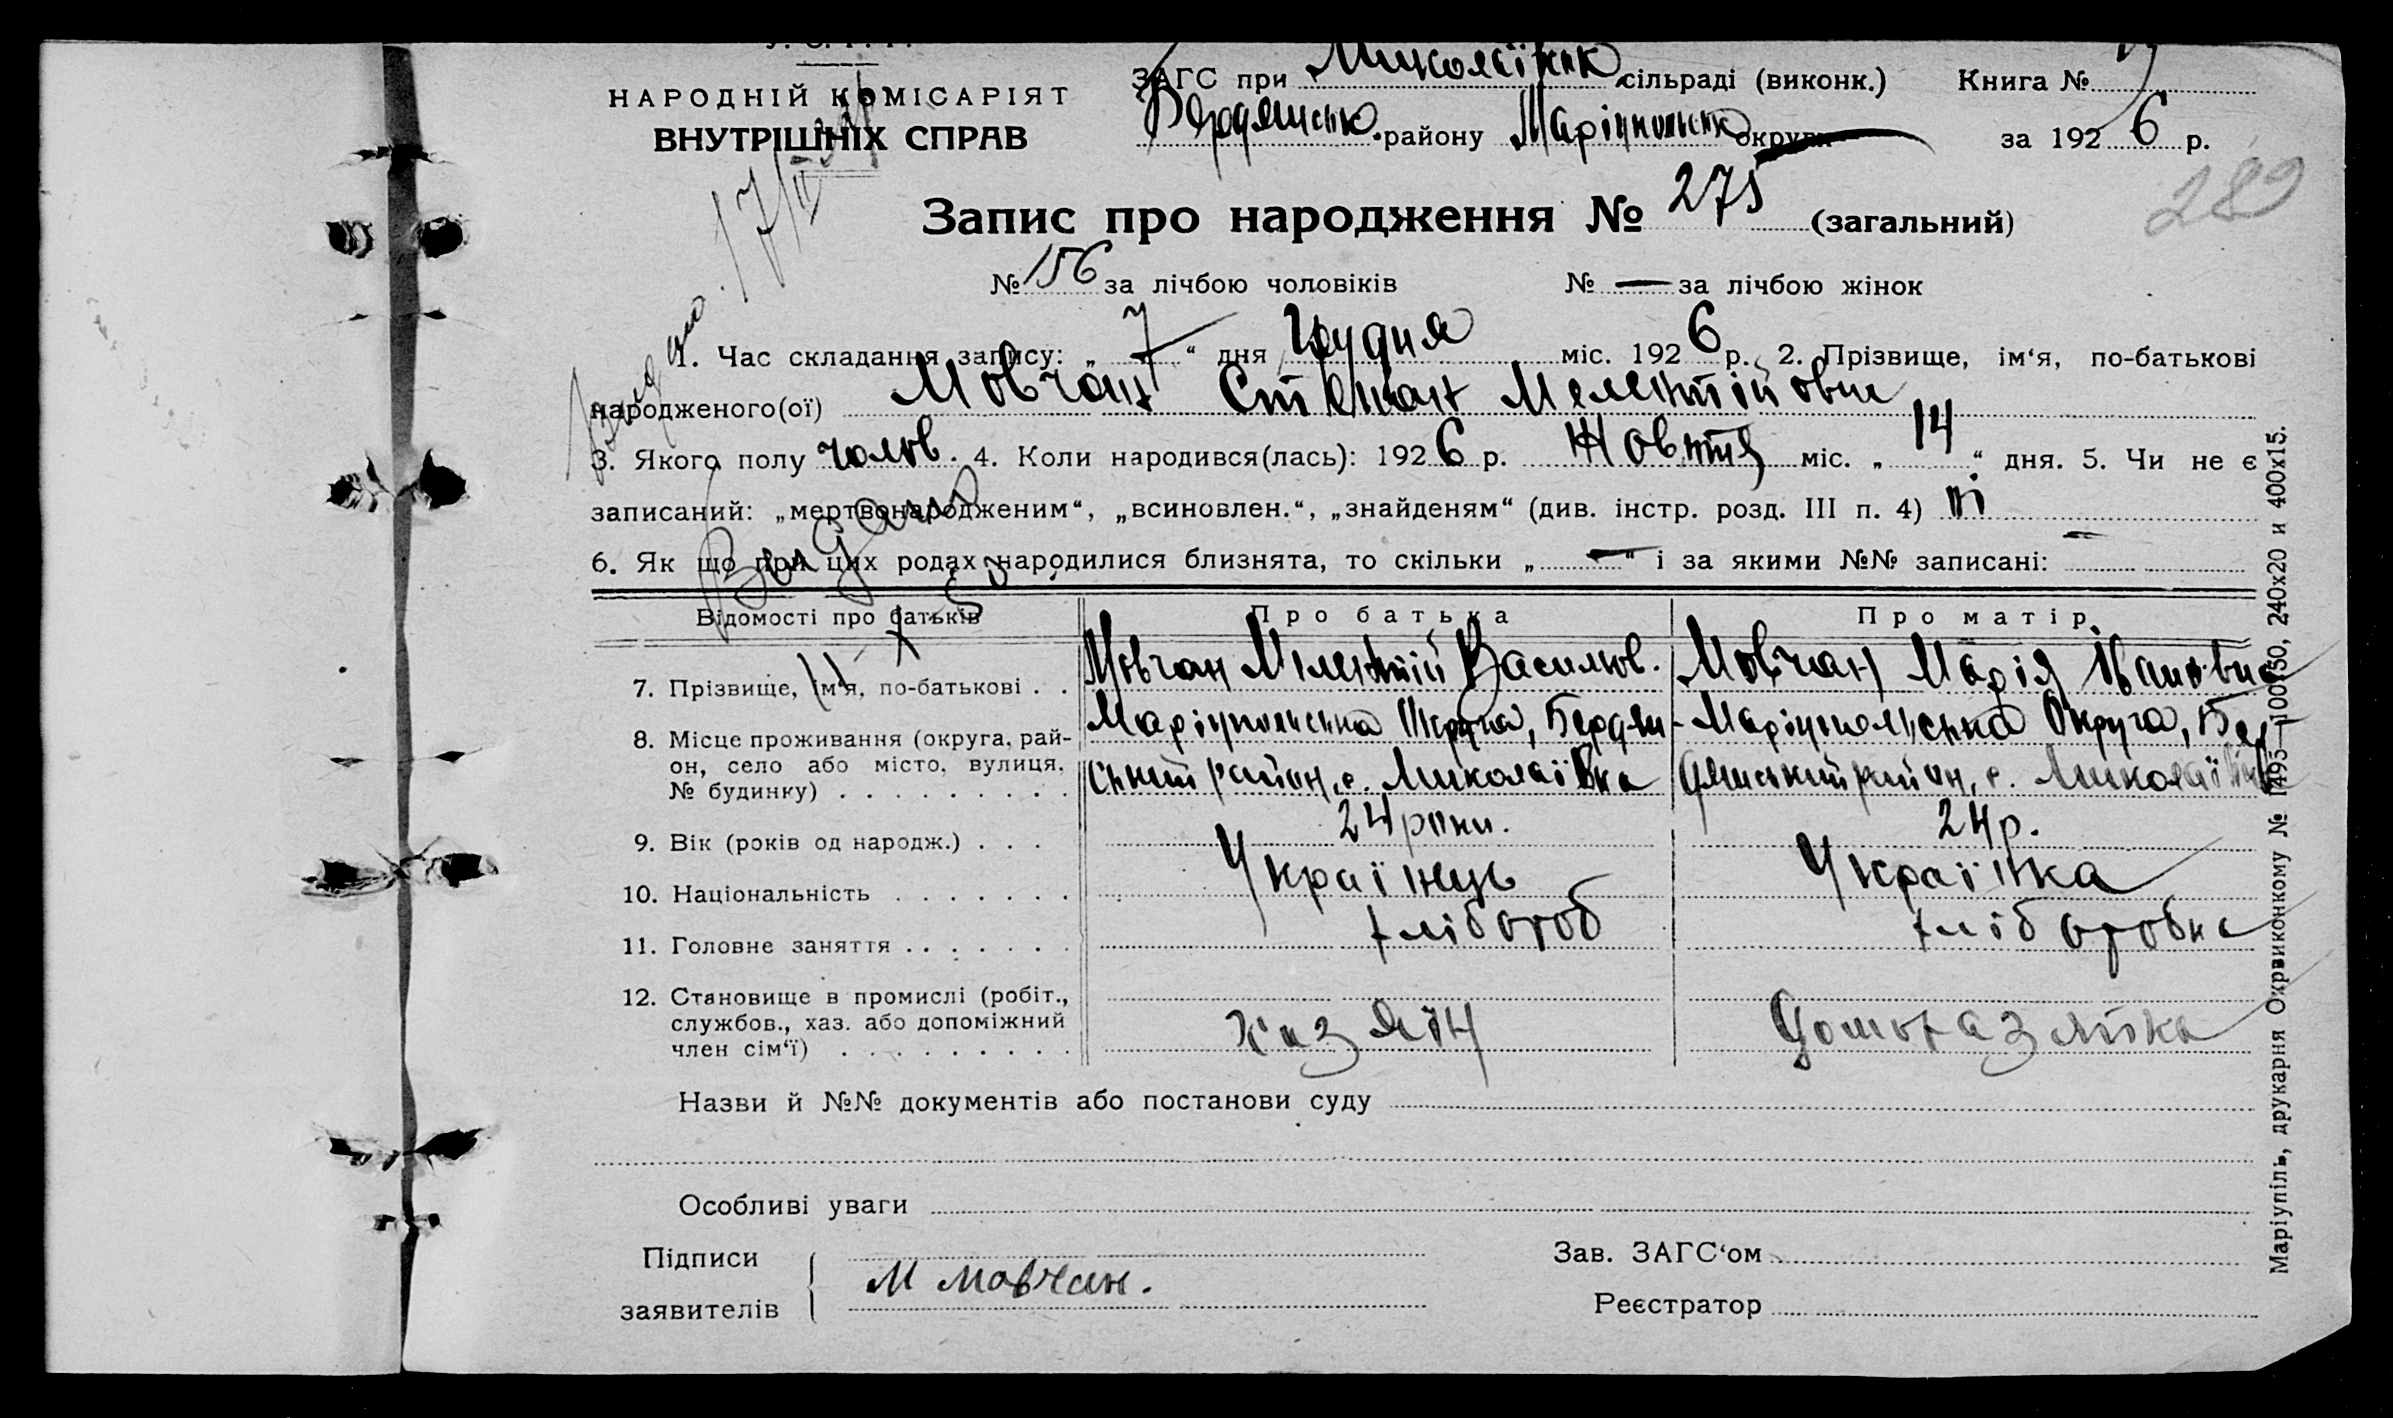 У. С. Р. Р.
НАРОДНІЙ КОМІСАРІЯТ
ВНУТРІШНІХ СПРАВ
ЗАГС при Миколаївськ сільраді (виконк.) Книга №
Бердянськ. району Маріупольськ округи за 1926 р.
Запис про народження № 275 (загальний)
289
№ 156 за лічбою чоловіків № — за лічбою жінок
1. Час складання запису: „7“ дня Грудня міс. 1926 р. 2. Прізвище, ім‘я, по-батькові
народженого(ої) Мовчан Степан Мелентійови
3. Якого полу чолов. 4. Коли народився(лась): 1926 р. Жовтня міс. „14“ дня. 5. Чи не є
записаний: „мертвонародженим“, „всиновлен.“, „знайденям“ (див. інстр. розд. III п. 4) ні
6. Як що при цих родах народилися близнята, то скільки „—“ і за якими №№ записані: —
Видано
17/II
Відомості про батьків Про батька Про матір
7. Прізвище, ім‘я, по-батькові . . Мовчан Мелентій Васильов. Мовчан Марія Івановна
8. Місце проживання (округа, рай-
он, село або місто, вулиця,
№ будинку) . . . . . . . . .
Маріупольська Округа, Бердян-
ський район, с. Миколаївка
Маріупольська Округа, Бер-
дянський район, с. Миколаївка
9. Вік (років од народж.) . . . 24 роки. 24 р.
10. Національність . . . . . . . Українець Українка
11. Головне заняття . . . . . . . хлібороб хліборобка
12. Становище в промислі (робіт.,
службов., хаз. або допоміжний
член сім‘ї) . . . . . . . . .
хазяїн домохазяйка
Назви й №№ документів або постанови суду
Особливі уваги
Підписи
заявителів
М Мовчан.
Зав. ЗАГС‘ом
Реєстратор
Маріупіль, друкарня Окрвиконкому № 1495—100×50, 240х20 и 400х15.